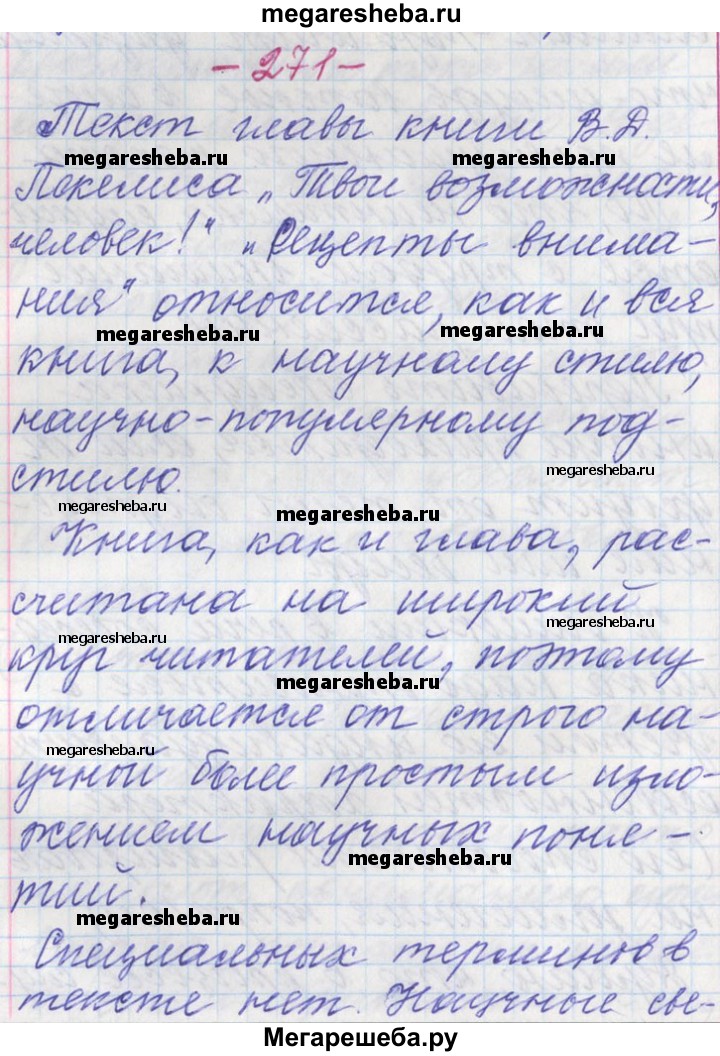 megaresheba.ru
- 271 -
Текст главы книги В.Д.
megaresheba.ru megaresheba.ru
Пекелиса „Твои возможности,
человек!“ „Рецепты внима-
ния“ относится, как и вся
megaresheba.ru megaresheba.ru
книга, к научному стилю,
научно-популярному под-
стилю.
megaresheba.ru
megaresheba.ru megaresheba.ru
Книга, как и глава, рас-
считана на широкий
megaresheba.ru megaresheba.ru
круг читателей, поэтому
megaresheba.ru
отличается от строго на-
megaresheba.ru
учной более простым изло-
жением научных поня-
megaresheba.ru
тий.
megaresheba.ru
Специальных терминов в
тексте нет. Научные све-
Мегарешеба.ру